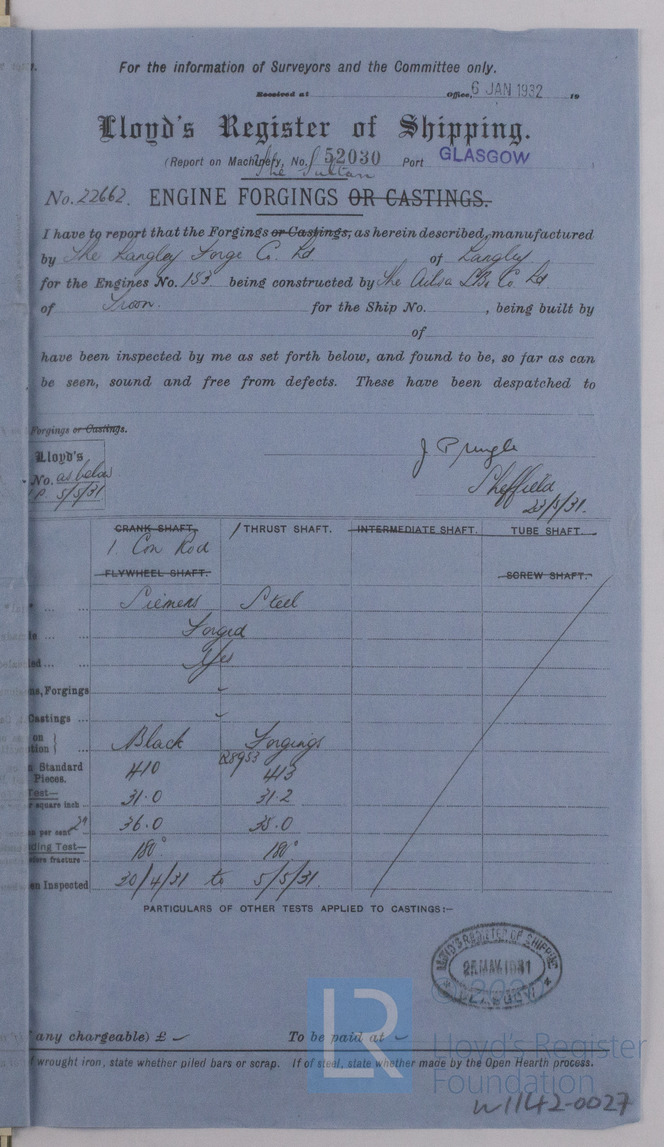 For the information of Surveyors and the Committee only.
Received at Office, 6 JAN 1932 19
Lloyd's Register of Shipping.
(Report on Machinery, No. 52030 Port GLASGOW
The Sultan
No. 22662. ENGINE FORGINGS OR CASTINGS.
I have to report that the Forgings or Castings, as herein described, manufactured
by The Langley Forge Co. Ld of Langley
for the Engines No. 153 being constructed by The Ailsa S.B. Co. Ld
of Troon. for the Ship No. , being built by
of
have been inspected by me as set forth below, and found to be, so far as can
be seen, sound and free from defects. These have been despatched to
Forgings or Castings.
Lloyd's
No. as below
J.P. 5/5/31
J Pringle
Sheffield
23/5/31.
CRANK SHAFT, 1 THRUST SHAFT. INTERMEDIATE SHAFT. TUBE SHAFT.
1. Con Rod
FLYWHEEL SHAFT. SCREW SHAFT.
Siemens Steel
Forged
Yes
Forgings
Castings ...
on
Black Forgings
R8953
Standard
Pieces. 410 413
Test—
square inch 31.0 31.2
per cent 2" 36.0 35.0
Test— 180° 180°
before fracture
Inspected 30/4/31 to 5/5/31.
PARTICULARS OF OTHER TESTS APPLIED TO CASTINGS:—
LLOYD'S REGISTER OF SHIPPING
25 MAY 1931
GLASGOW
any chargeable) £ To be paid at
wrought iron, state whether piled bars or scrap. If of steel, state whether made by the Open Hearth process.
LR
Lloyd's Register
Foundation
W1142-0027